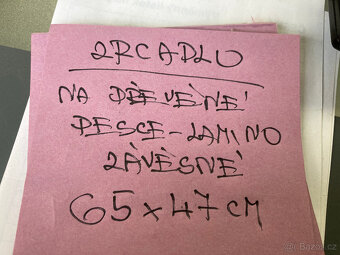 ZRCADLO
NA DŘEVĚNÉ
DESCE-LAMINO
ZÁVĚSNÉ
65 x 47 CM
Bazoš.cz